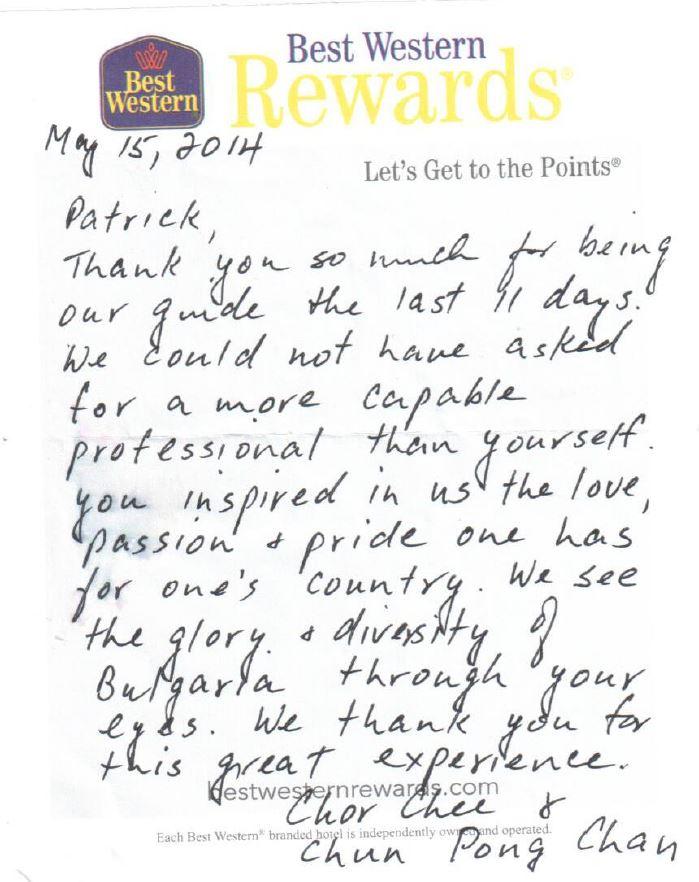 Best Western
Best
Western
Rewards®
May 15, 2014
Let's Get to the Points®
Patrick,
Thank you so much for being
our guide the last 11 days.
We could not have asked
for a more capable
professional than yourself.
you inspired in us the love,
passion & pride one has
for one's country. We see
the glory & diversity of
Bulgaria through your
eyes. We thank you for
this great experience.
bestwesternrewards.com
Chor Chee &
Each Best Western® branded hotel is independently owned and operated.
Chun Pong Chan